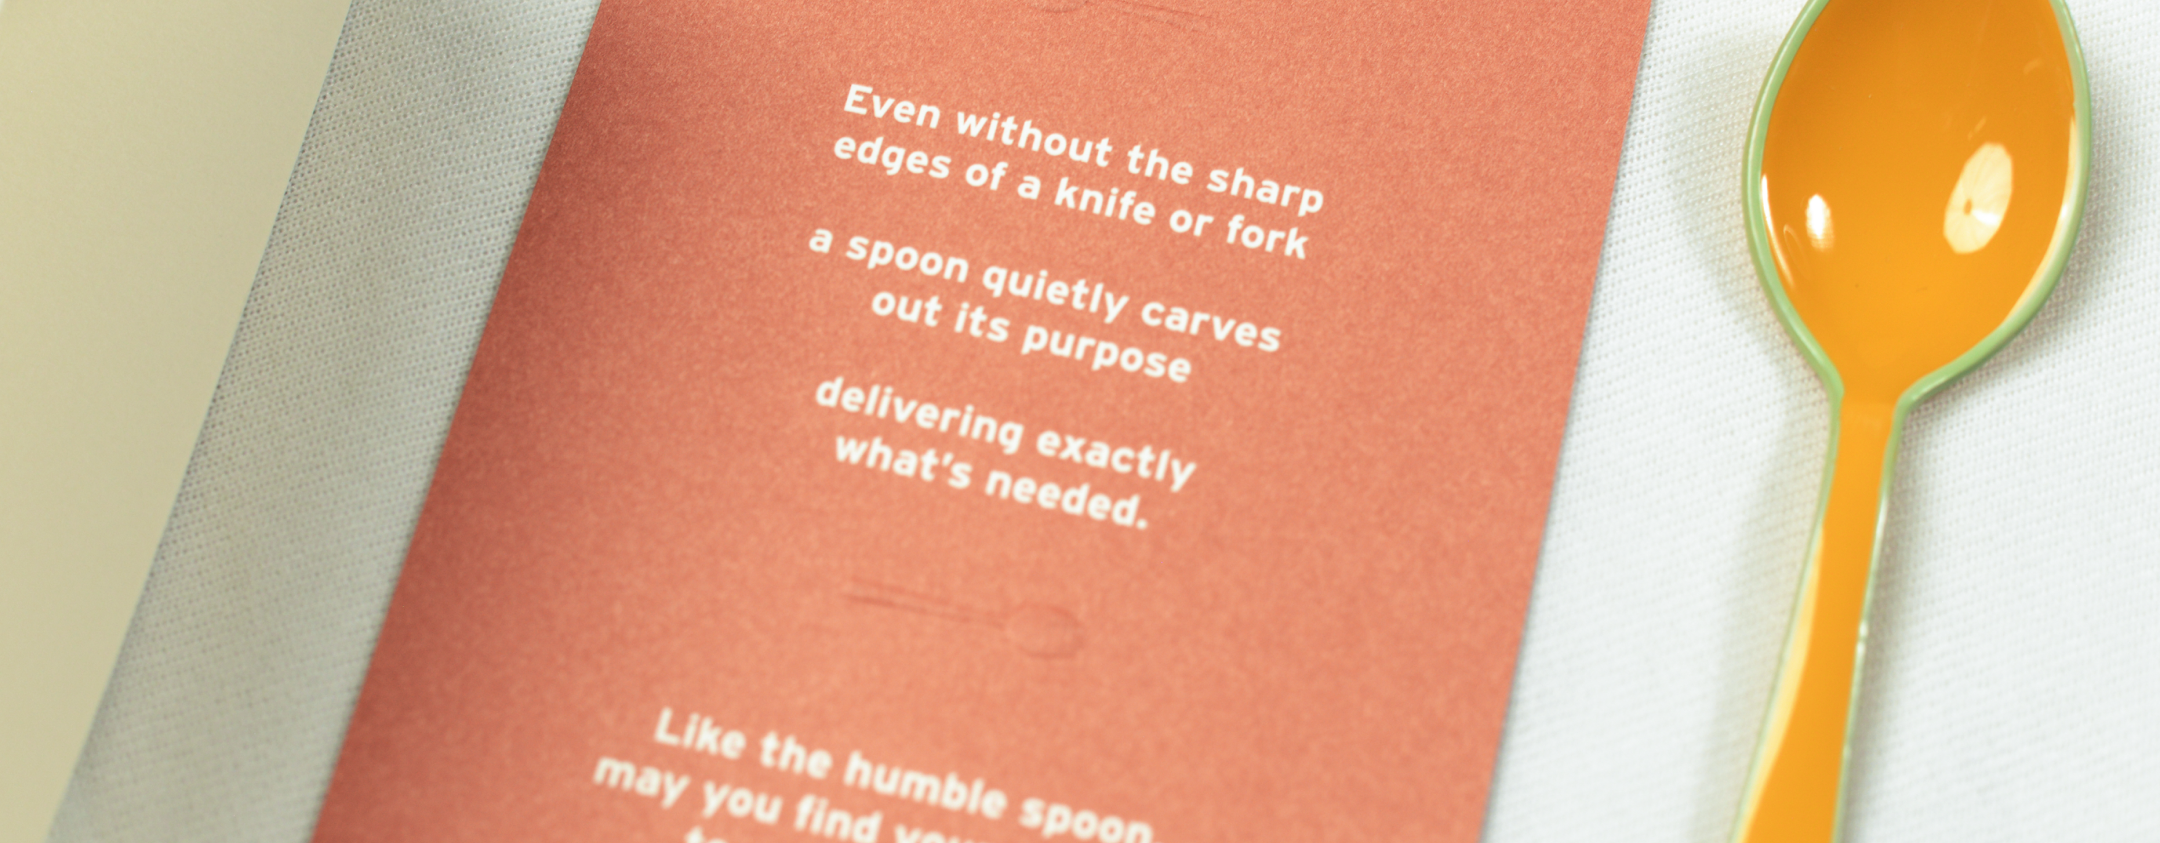 Even without the sharp
edges of a knife or fork
a spoon quietly carves
out its purpose
delivering exactly
what's needed.
Like the humble spoon
may you find your
to